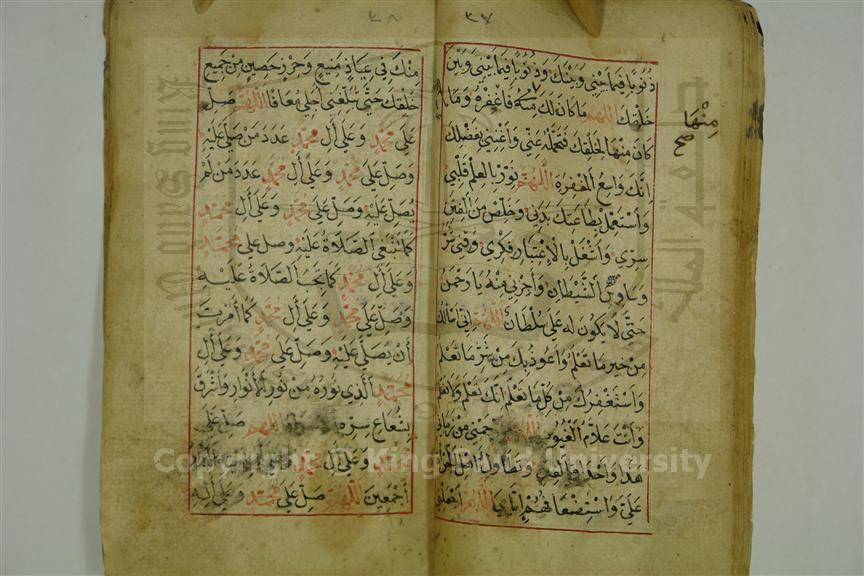 ٣٧
ذنوبا فيما بيني وبينك وذنوبا فيما بيني وبين
خلقك اللهم ما كان لك منها فاغفره وما
منها
صح
كان منها لخلقك فتحمله عني واغنني بفضلك
انك واسع المغفرة اللهم نور بالعلم قلبي
واستعمل بطاعتك بدني وخلص من الفتن
سري واشغل بالاعتبار فكري وقني شر
وساوس الشيطان واجرني منه يا رحمن
حتى لا يكون له علي سلطان اللهم اني اسالك
من خير ما تعلم واعوذ بك من شر ما تعلم
واستغفرك من كل ما تعلم انك تعلم ولا نعلم
وانت علام الغيوب اللهم ارحمني من زماني
هذا واحداق الفتن وتطاول اهل الجراة
علي واستضعافهم اياي اللهم اجعلني
٣٨
منك في عياذ منيع وحرز حصين من جميع
خلقك حتى تبلغني اجلي معافا اللهم صل
على محمد وعلى آل محمد عدد من صلى عليه
وصل على محمد وعلى آل محمد عدد من لم
يصل عليه وصل على محمد وعلى آل محمد
كما تنبغي الصلاة عليه وصل على محمد
وعلى آل محمد كما تجب الصلاة عليه
وصل على محمد وعلى آل محمد كما امرت
ان يصلى عليه وصل على محمد وعلى آل
محمد الذي نوره من نور الانوار واشرق
بشعاع سره الاسرار اللهم صل على
محمد وعلى آل محمد وعلى
اجمعين اللهم صل على محمد وعلى آله
Copyright © King Saud University